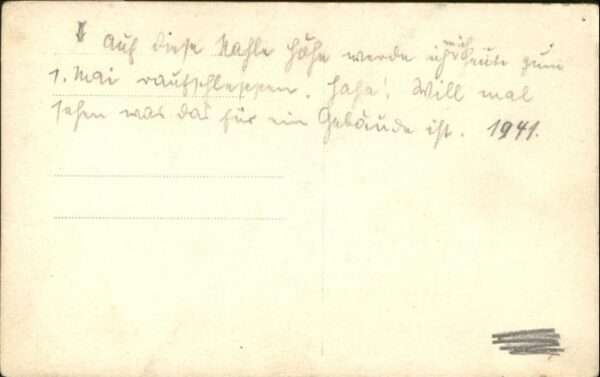 Auf diese Kahle Höhe werde ich mich heute zum
1. Mai raufschleppen. Haha! Will mal
sehen was das für ein Gebäude ist. 1941.